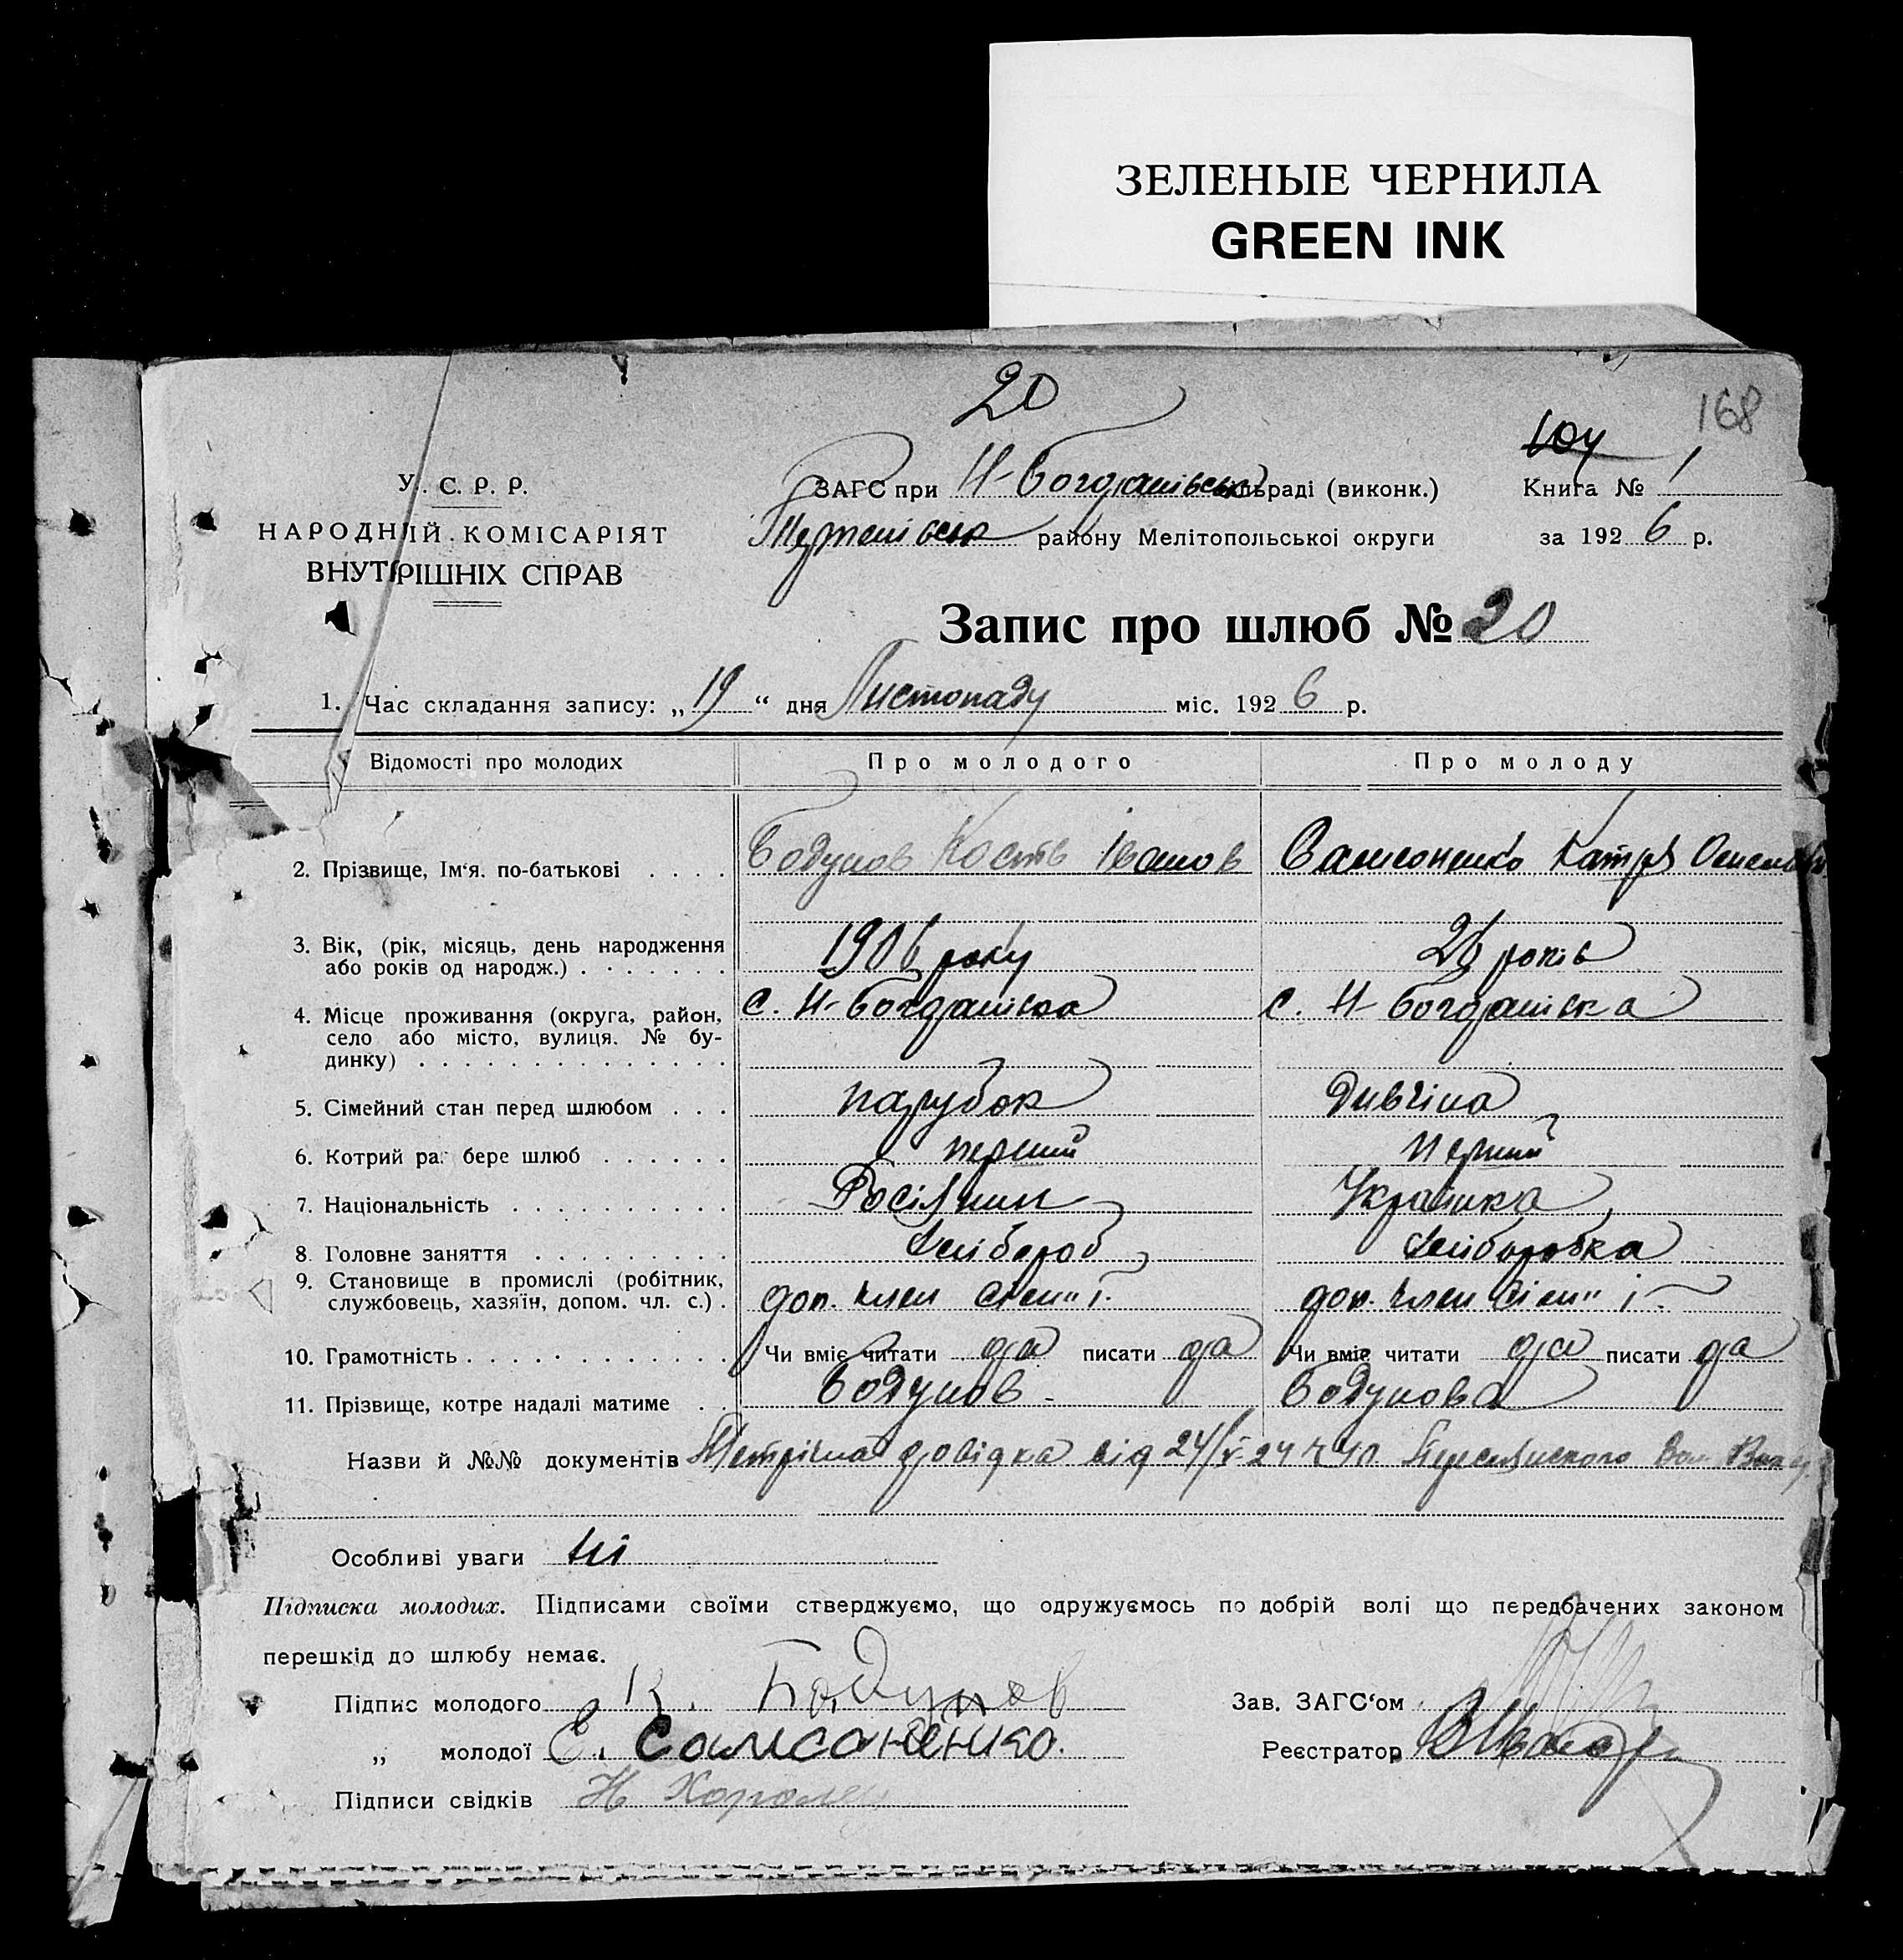 ЗЕЛЕНЫЕ ЧЕРНИЛА
GREEN INK
20
168
104
У. С. Р. Р.
НАРОДНИЙ КОМІСАРІЯТ
ВНУТРІШНІХ СПРАВ
ЗАГС при Н-Богданівськ раді (виконк.)
Книга № 1
району Мелітопольської округи
за 1926 р.
Запис про шлюб № 20
1. Час складання запису: „19“ дня Листопаду міс. 1926 р.
Відомості про молодих
Про молодого
Про молоду
2. Прізвище, Ім‘я. по-батькові . . . .
Бодунов Кость Іванов
Самсоненко Катря
3. Вік, (рік, місяць, день народження
або років од народж.) . . . . . . .
1906 року
20 років
4. Місце проживання (округа, район,
село або місто, вулиця. № бу-
динку) . . . . . . . . . . . . . .
с. Н-Богданівка
с. Н-Богданівка
5. Сімейний стан перед шлюбом . . .
парубок
Дивчіна
6. Котрий раз бере шлюб . . . . . .
перший
перший
7. Національність . . . . . . . . . .
Росіянин
Українка
8. Головне заняття . . . . . . . . .
хлібороб
хліборобка
9. Становище в промислі (робітник,
службовець, хазяїн, допом. чл. с.) .
доп. член сієм"ї
доп. член сієм"ї
10. Грамотність . . . . . . . . . . . .
Чи вміє читати да писати да
Чи вміє читати да писати да
11. Прізвище, котре надалі матиме . .
Бодунов
Бодунова
Назви й №№ документів Метрічна довідка від 24/V-24
Особливі уваги ні
Підписка молодих. Підписами своїми стверджуємо, що одружуємось по добрій волі що передбачених законом
перешкід до шлюбу немає.
Підпис молодого К. Бодунов
Зав. ЗАГС‘ом
„ молодої Е. Самсоненко.
Реєстратор
Підписи свідків Н